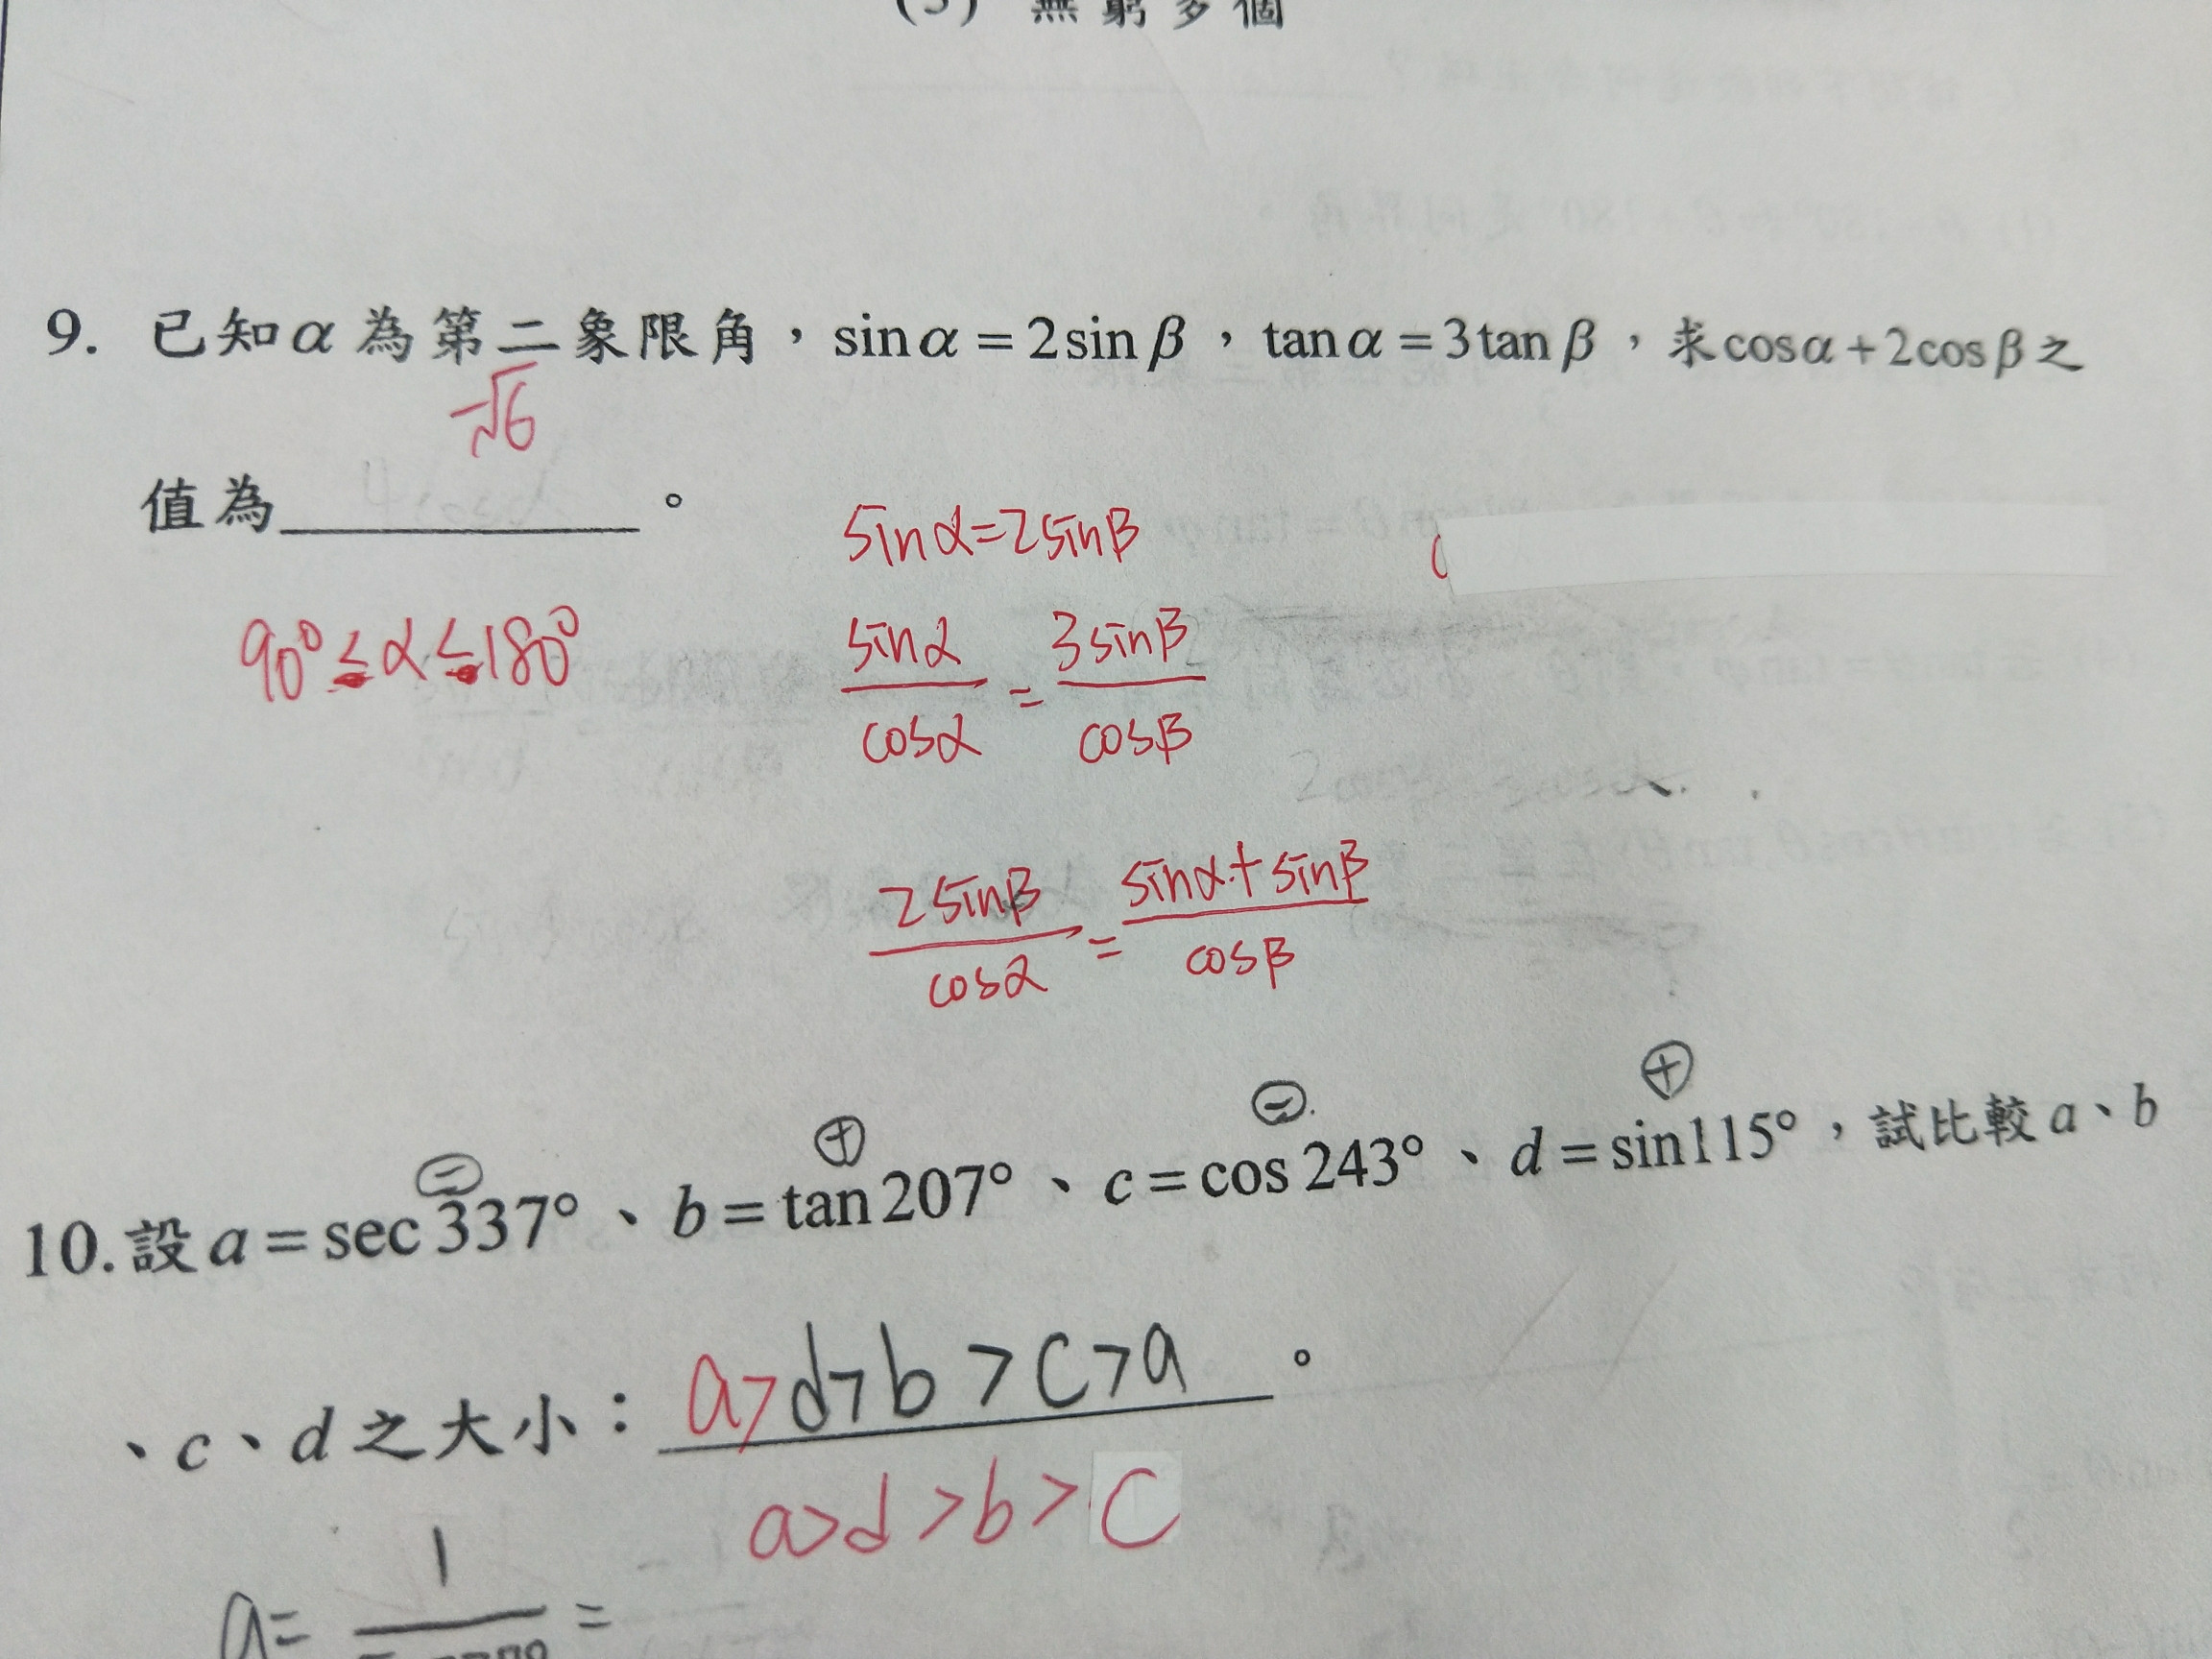 (5) 無窮多個
9. 已知α為第二象限角，sinα=2sinβ，tanα=3tanβ，求cosα+2cosβ之
-√6
值為 。
sinα=2sinβ
90°≤α≤180°
sinα/cosα = 3sinβ/cosβ
2sinβ/cosα = sinα+sinβ/cosβ
⊖ ⊕ ⊖ ⊕
10.設a=sec337°、b=tan207°、c=cos243°、d=sin115°，試比較a、b
、c、d之大小：a>d>b>c>a。
a>d>b>c
a= 1/ =